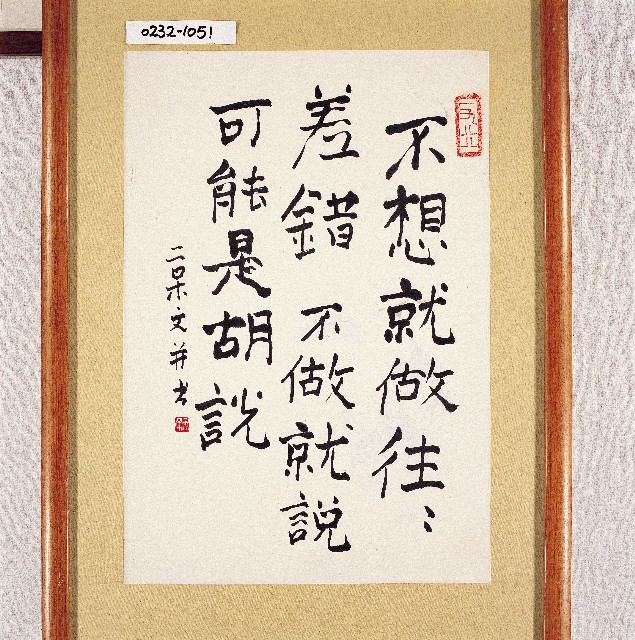 0232-1051
不想就做往〻
差錯 不做就說
可能是胡說
二呆文并书